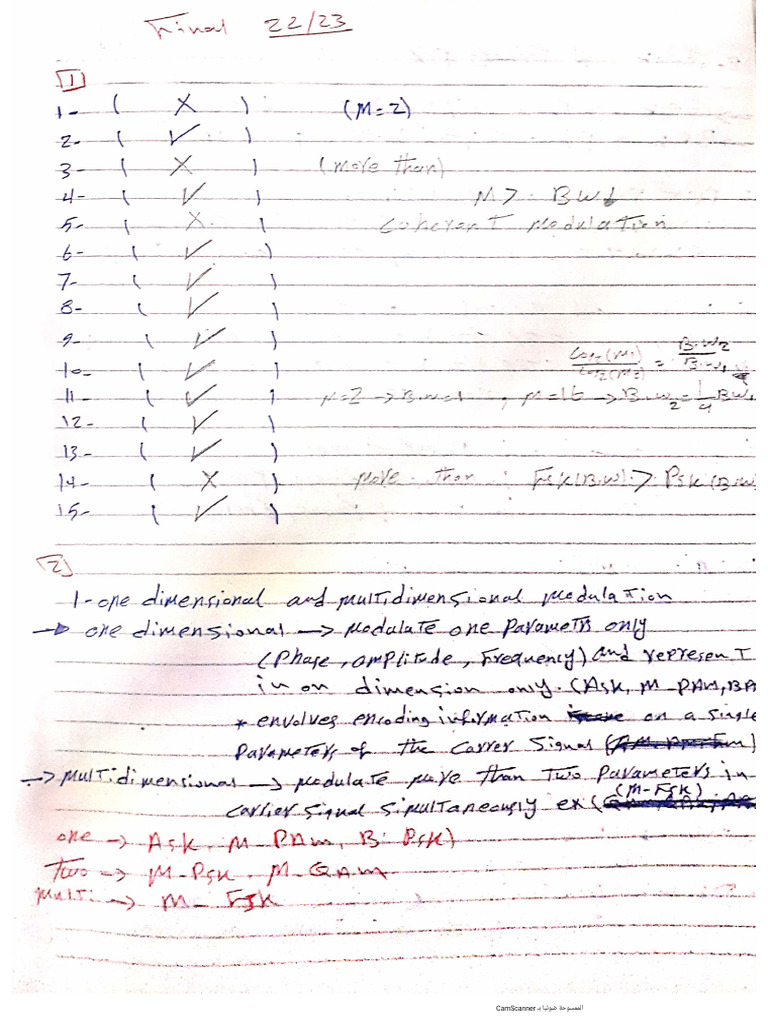 Final 22/23
1
1- ( X ) (M=2)
2- ( ✓ )
3- ( X ) (more than)
4- ( ✓ ) M> BW↓
5- ( X ) coherent modulation
6- ( ✓ )
7- ( ✓ )
8- ( ✓ )
9- ( ✓ )
10- ( ✓ ) Log2(M1)/Log2(M2) = B.W2/B.W1
11- ( ✓ ) M=2 → B.W=1 , M=16 → B.W2=1/4 BW1
12- ( ✓ )
13- ( ✓ )
14- ( X ) more than : Fsk(B.W) > Psk(B.W
15- ( ✓ )
2
1- one dimensional and multidimensional modulation
→ one dimensional → modulate one Parametrs only
(Phase, amplitude, Frequency) and represent
in on dimension only. (Ask, M_PAM, BA
* envolves encoding information on a single
Parameters of the Carrer Signal
→ multidimensional → modulate more than Two Parameters in
(M-Fsk)
carrier Signal Simultaneously ex(
one → Ask, M_PAM, B Psk)
Two → M_Psk, M_QAM
Multi → M_ Fsk
الممسوحة ضوئيا بـ CamScanner